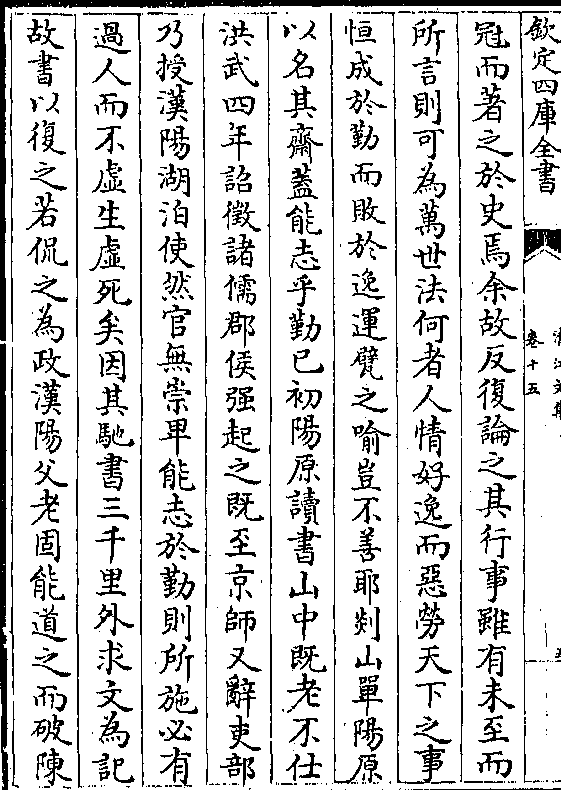 欽定四庫全書
卷十五
冠而著之於史焉余故反復論之其行事雖有未至而
所言則可為萬世法何者人情好逸而惡勞天下之事
恒成於勤而敗於逸運甓之喻豈不善耶剡山單陽原
以名其齋蓋能志乎勤已初陽原讀書山中既老不仕
洪武四年詔徵諸儒郡侯强起之既至京師又辭吏部
乃授漢陽湖泊使然官無崇卑能志於勤則所施必有
過人而不虛生虛死矣因其馳書三千里外求文為記
故書以復之若侃之為政漢陽父老固能道之而破陳